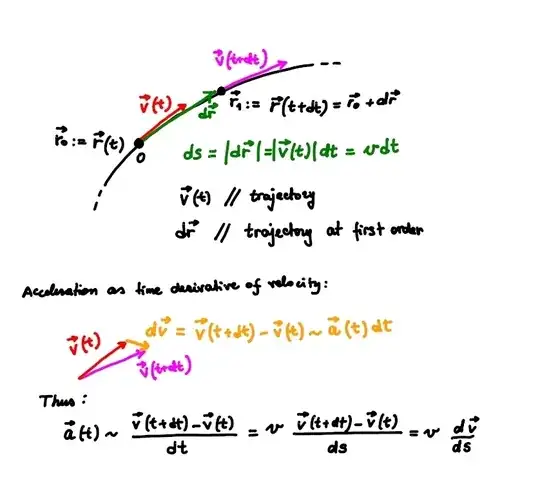 v⃗(t+dt)
v⃗(t)
dr⃗
r⃗₁ := r⃗(t+dt) = r⃗₀ + dr⃗
r⃗₀ := r⃗(t)
O
ds = |dr⃗| = |v⃗(t)| dt = v dt
v⃗(t) // trajectory
dr⃗ // trajectory at first order
Acceleration as time derivative of velocity:
dv⃗ = v⃗(t+dt) - v⃗(t) ~ a⃗(t) dt
v⃗(t)
v⃗(t+dt)
Thus:
a⃗(t) ~ (v⃗(t+dt) - v⃗(t))/dt = v (v⃗(t+dt) - v⃗(t))/ds = v dv⃗/ds